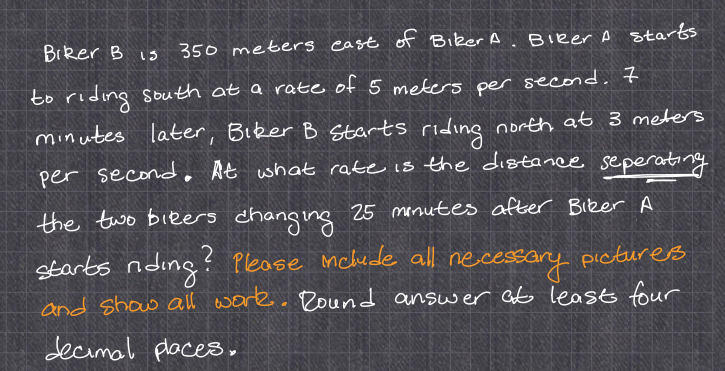 Biker B is 350 meters east of Biker A. Biker A starts
to riding south at a rate of 5 meters per second. 7
minutes later, Biker B starts riding north at 3 meters
per second. At what rate is the distance seperating
the two bikers changing 25 minutes after Biker A
starts riding? Please include all necessary pictures
and show all work. Round answer at least four
decimal places.